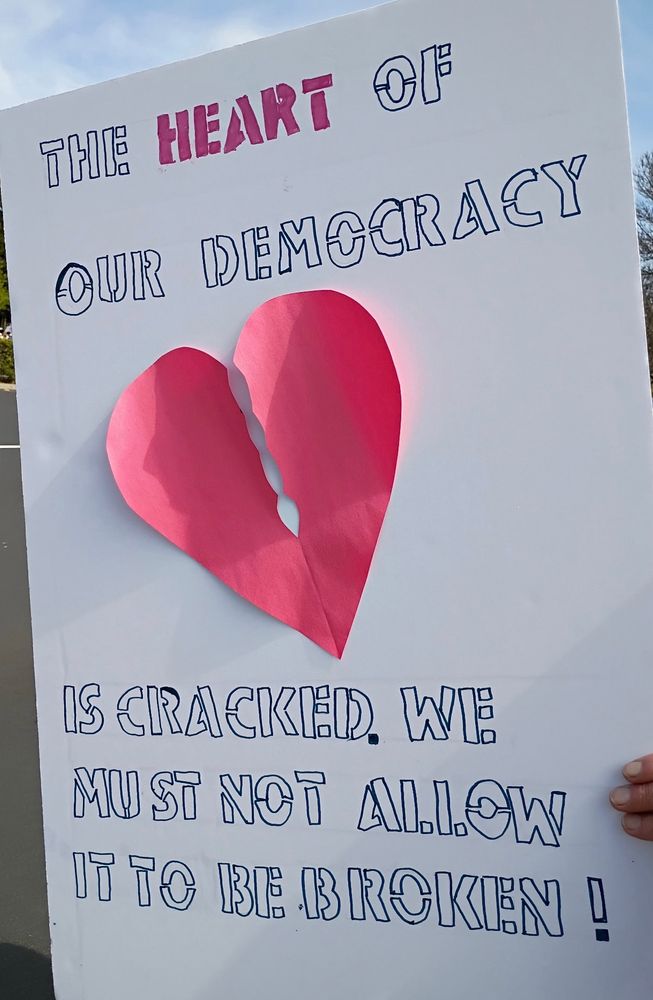 THE HEART OF
OUR DEMOCRACY
IS CRACKED. WE
MUST NOT ALLOW
IT TO BE BROKEN!